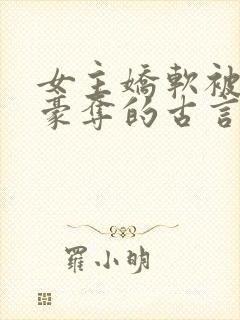 女主嬌軟被
豪奪的古言
羅小明